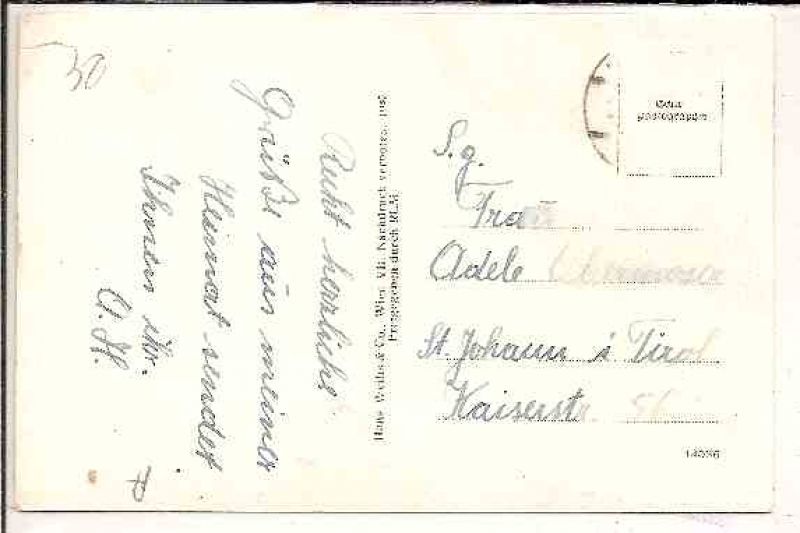 50
Recht herzliche
Grüße aus meiner
Heimat sendet
Ihnen Ihr.
A. H.
Hans & Co., Wien, VII. Nachdruck verboten.
Freigegeben durch RLM
Echt
S. g.
Frau
Adele
St. Johann i Tirol
Kaiserstr.